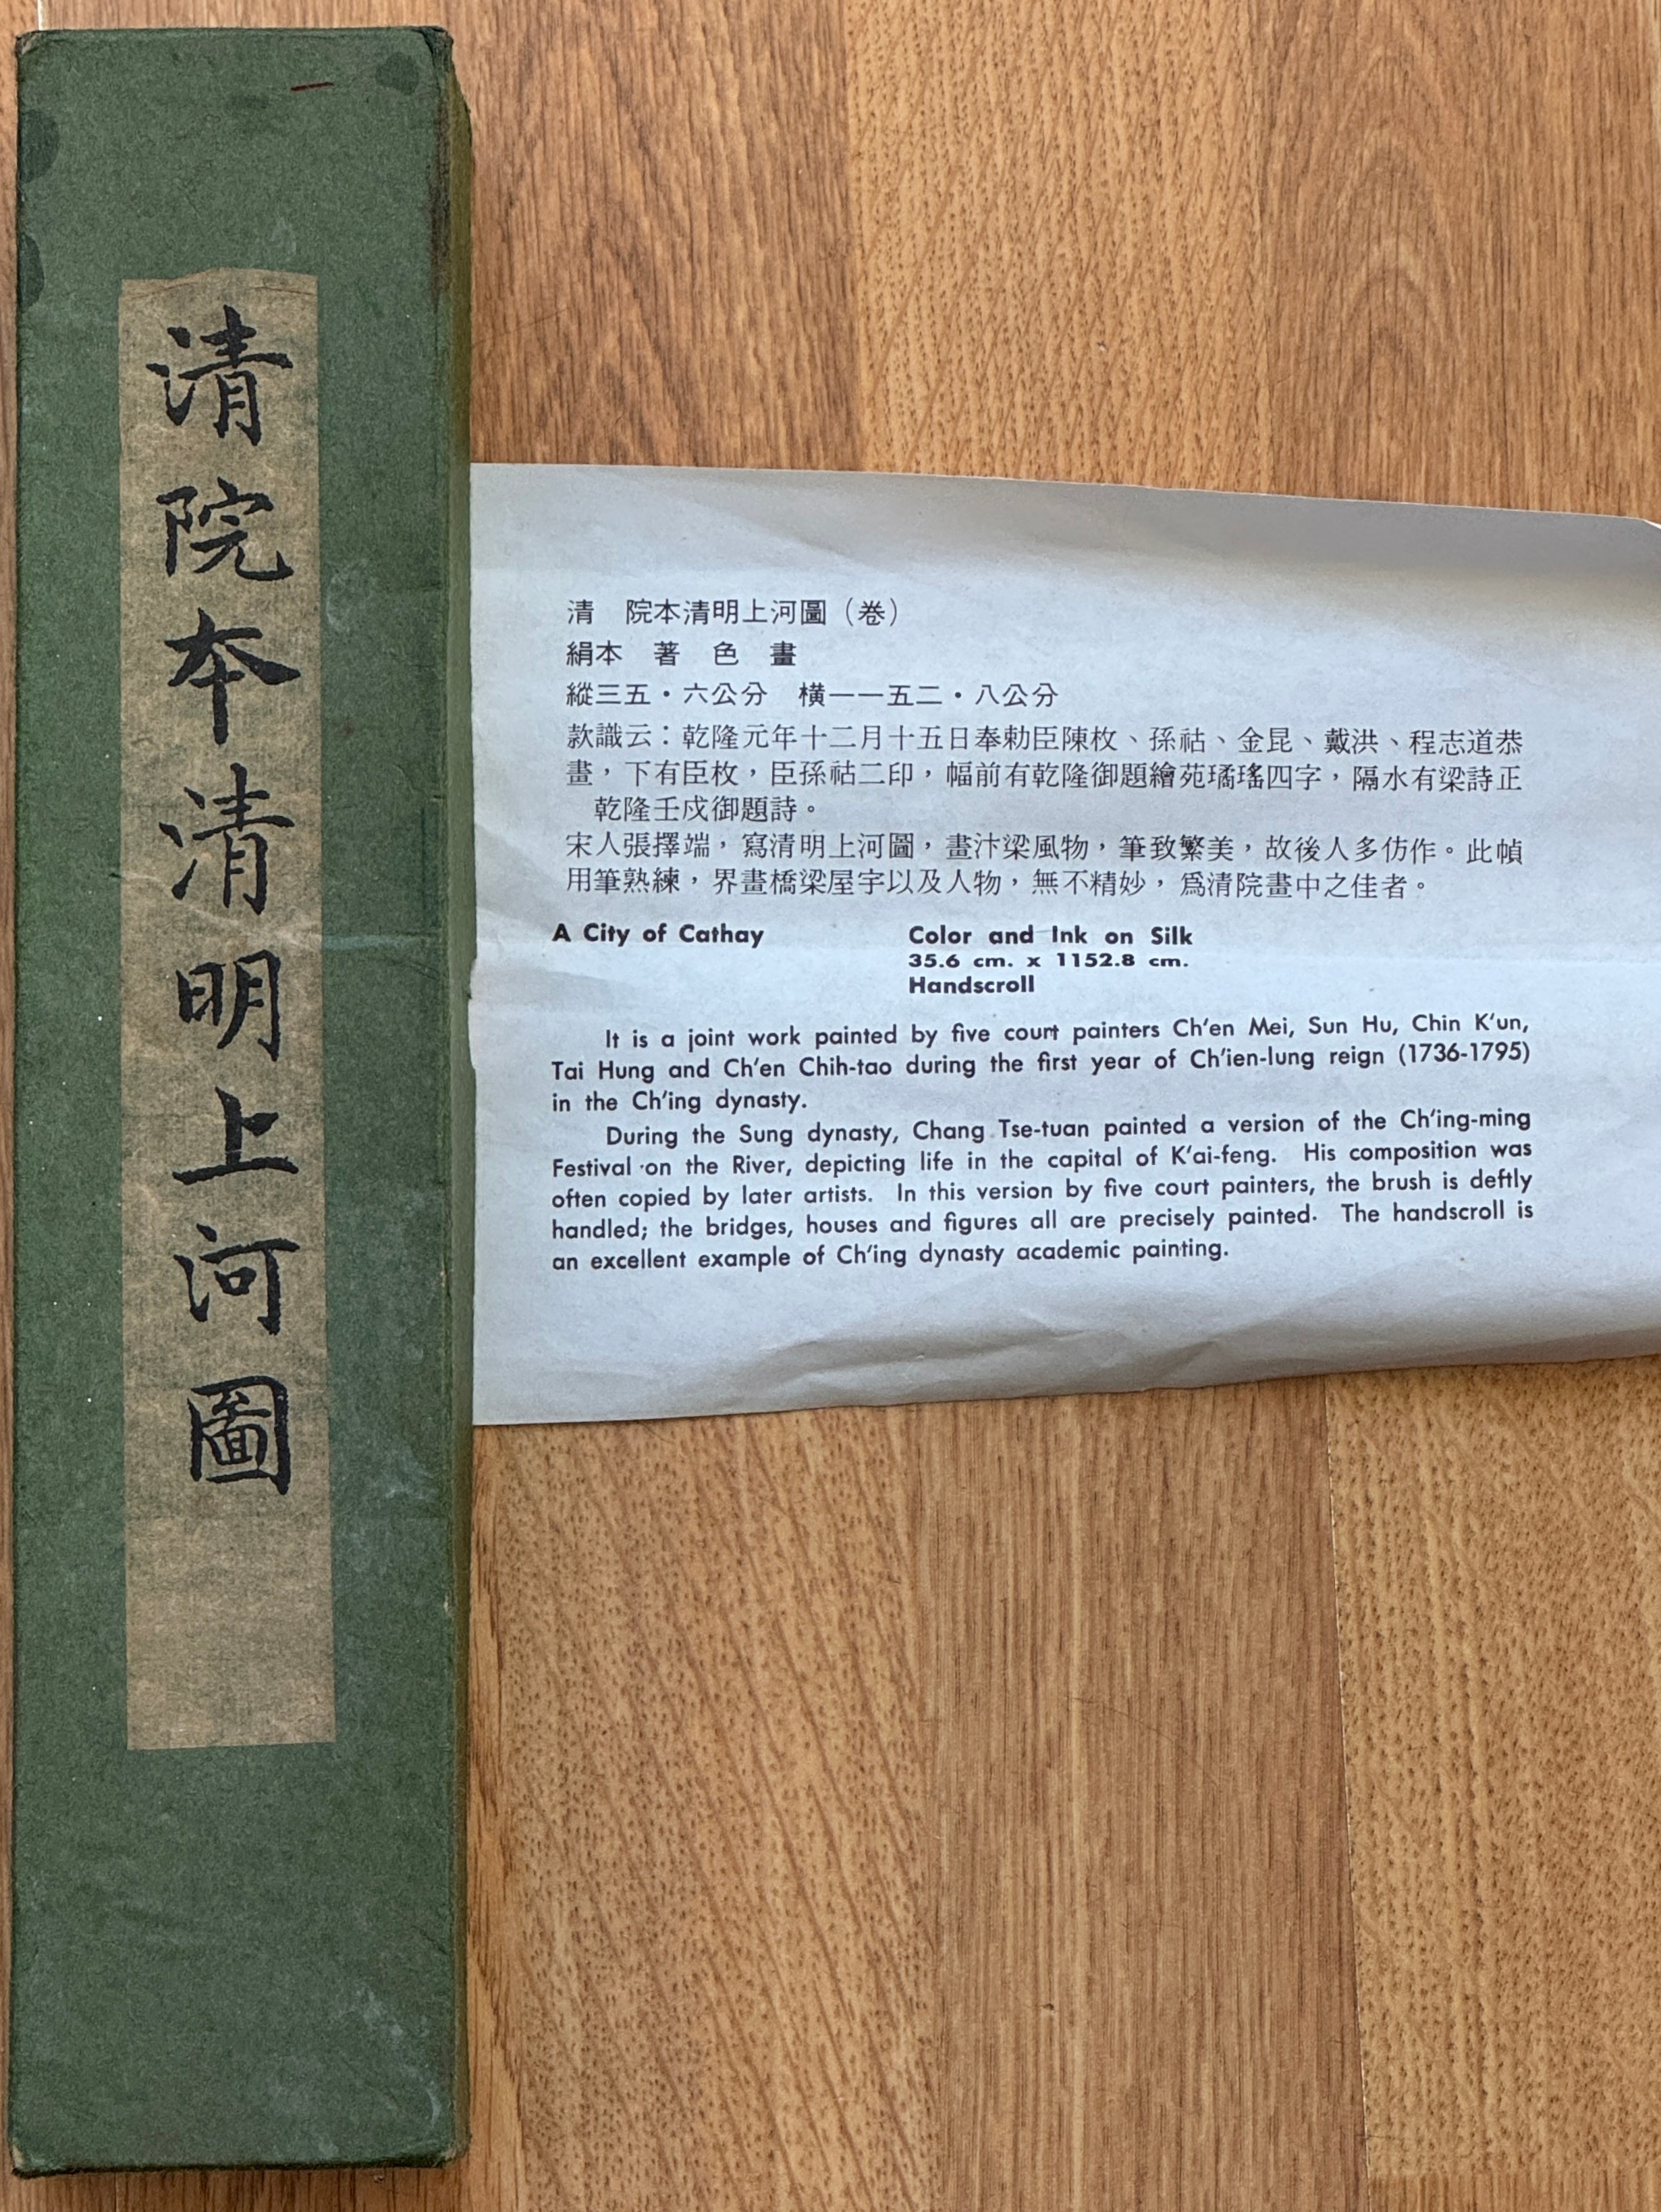 清院本清明上河圖
清　院本清明上河圖（卷）
絹本　著　色　畫
縱三五・六公分　橫一一五二・八公分
款識云：乾隆元年十二月十五日奉勅臣陳枚、孫祜、金昆、戴洪、程志道恭
畫，下有臣枚，臣孫祜二印，幅前有乾隆御題繪苑璚瑤四字，隔水有梁詩正
乾隆壬戌御題詩。
宋人張擇端，寫清明上河圖，畫汴梁風物，筆致繁美，故後人多仿作。此幀
用筆熟練，界畫橋梁屋宇以及人物，無不精妙，爲清院畫中之佳者。
A City of Cathay
Color and Ink on Silk
35.6 cm. x 1152.8 cm.
Handscroll
It is a joint work painted by five court painters Ch'en Mei, Sun Hu, Chin K'un,
Tai Hung and Ch'en Chih-tao during the first year of Ch'ien-lung reign (1736-1795)
in the Ch'ing dynasty.
During the Sung dynasty, Chang Tse-tuan painted a version of the Ch'ing-ming
Festival on the River, depicting life in the capital of K'ai-feng. His composition was
often copied by later artists. In this version by five court painters, the brush is deftly
handled; the bridges, houses and figures all are precisely painted. The handscroll is
an excellent example of Ch'ing dynasty academic painting.